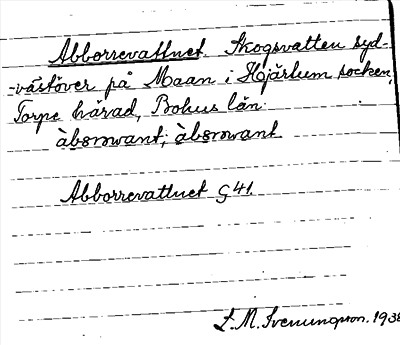 Abborrevattnet. Skogsvatten syd-
-västöver på Maan i Hjärtum socken,
Torpe härad, Bohus län.
àbsrowant; àbsrowant
Abborrevattnet G 41.
L. M. Svenungson. 1938